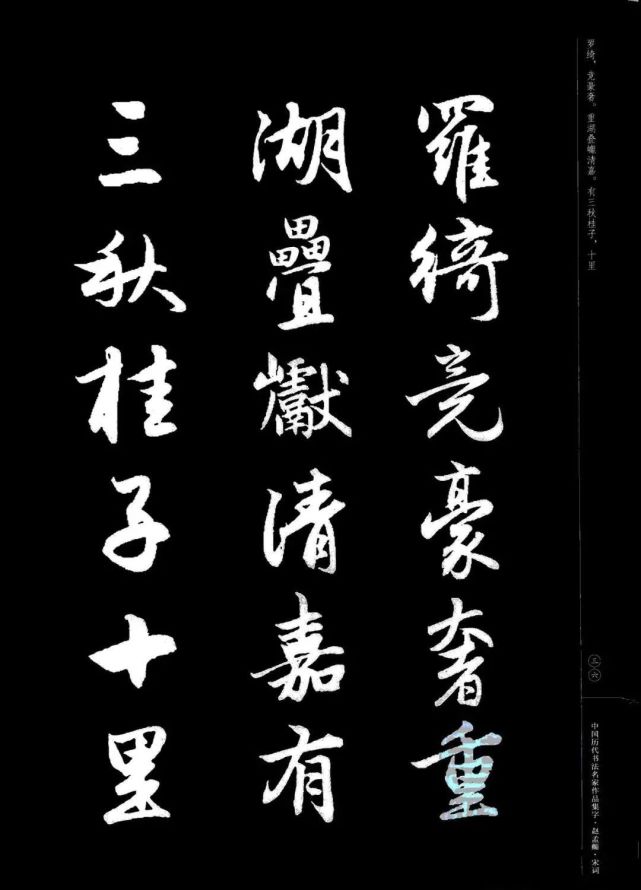 羅綺竞豪奢重
湖疊巘清嘉有
三秋桂子十里
罗绮，竞豪奢。重湖叠巘清嘉。有三秋桂子，十里
三六
中国历代书法名家作品集字·赵孟頫·宋词